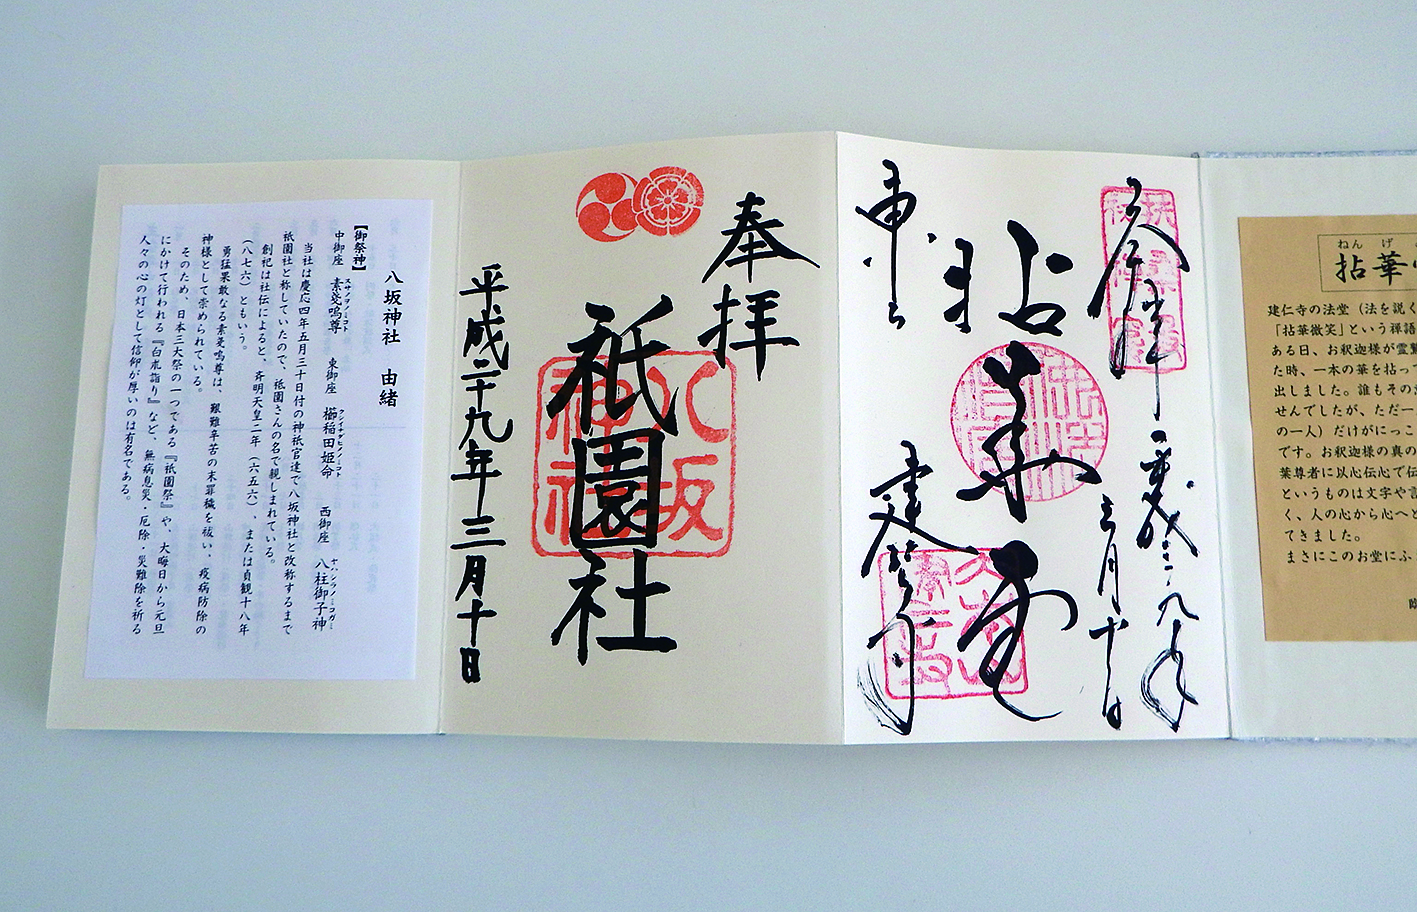 ねんげ
拈華
建仁寺の法堂（法を説く
「拈華微笑」という禅語
ある日、お釈迦様が霊鷲
た時、一本の華を拈って
出しました。誰もその
せんでしたが、ただ一
の一人）だけがにっこ
です。お釈迦様の真の
葉尊者に以心伝心で伝
というものは文字や言
く、人の心から心へと
てきました。
まさにこのお堂にふ
三月十日
拈華堂
建仁寺
奉拝
祇園社
八坂神社
平成二十九年三月十日
八坂神社 由緒
【御祭神】
中御座 素戔嗚尊 東御座 櫛稲田姫命 西御座 八柱御子神
スサノヲノミコト クシイナダヒメノミコト ヤハシラノミコガミ
当社は慶応四年五月三十日付の神祇官達で八坂神社と改称するまで
祇園社と称していたので、祇園さんの名で親しまれている。
創祀は社伝によると、斉明天皇二年（六五六）、または貞観十八年
（八七六）ともいう。
勇猛果敢なる素戔嗚尊は、艱難辛苦の末罪穢を祓い、疫病防除の
神様として崇められている。
そのため、日本三大祭の一つである『祇園祭』や、大晦日から元旦
にかけて行われる『白朮詣り』など、無病息災・厄除・災難除を祈る
人々の心の灯として信仰が厚いのは有名である。